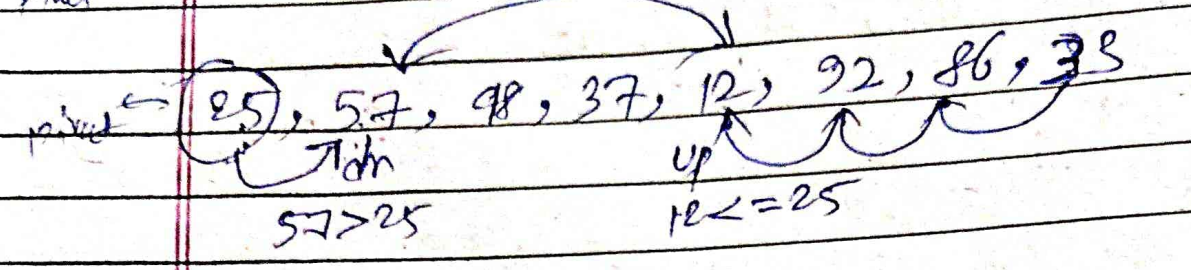 pivot ← 25, 57, 98, 37, 12, 92, 86, 33
dn up
57>25 12<=25